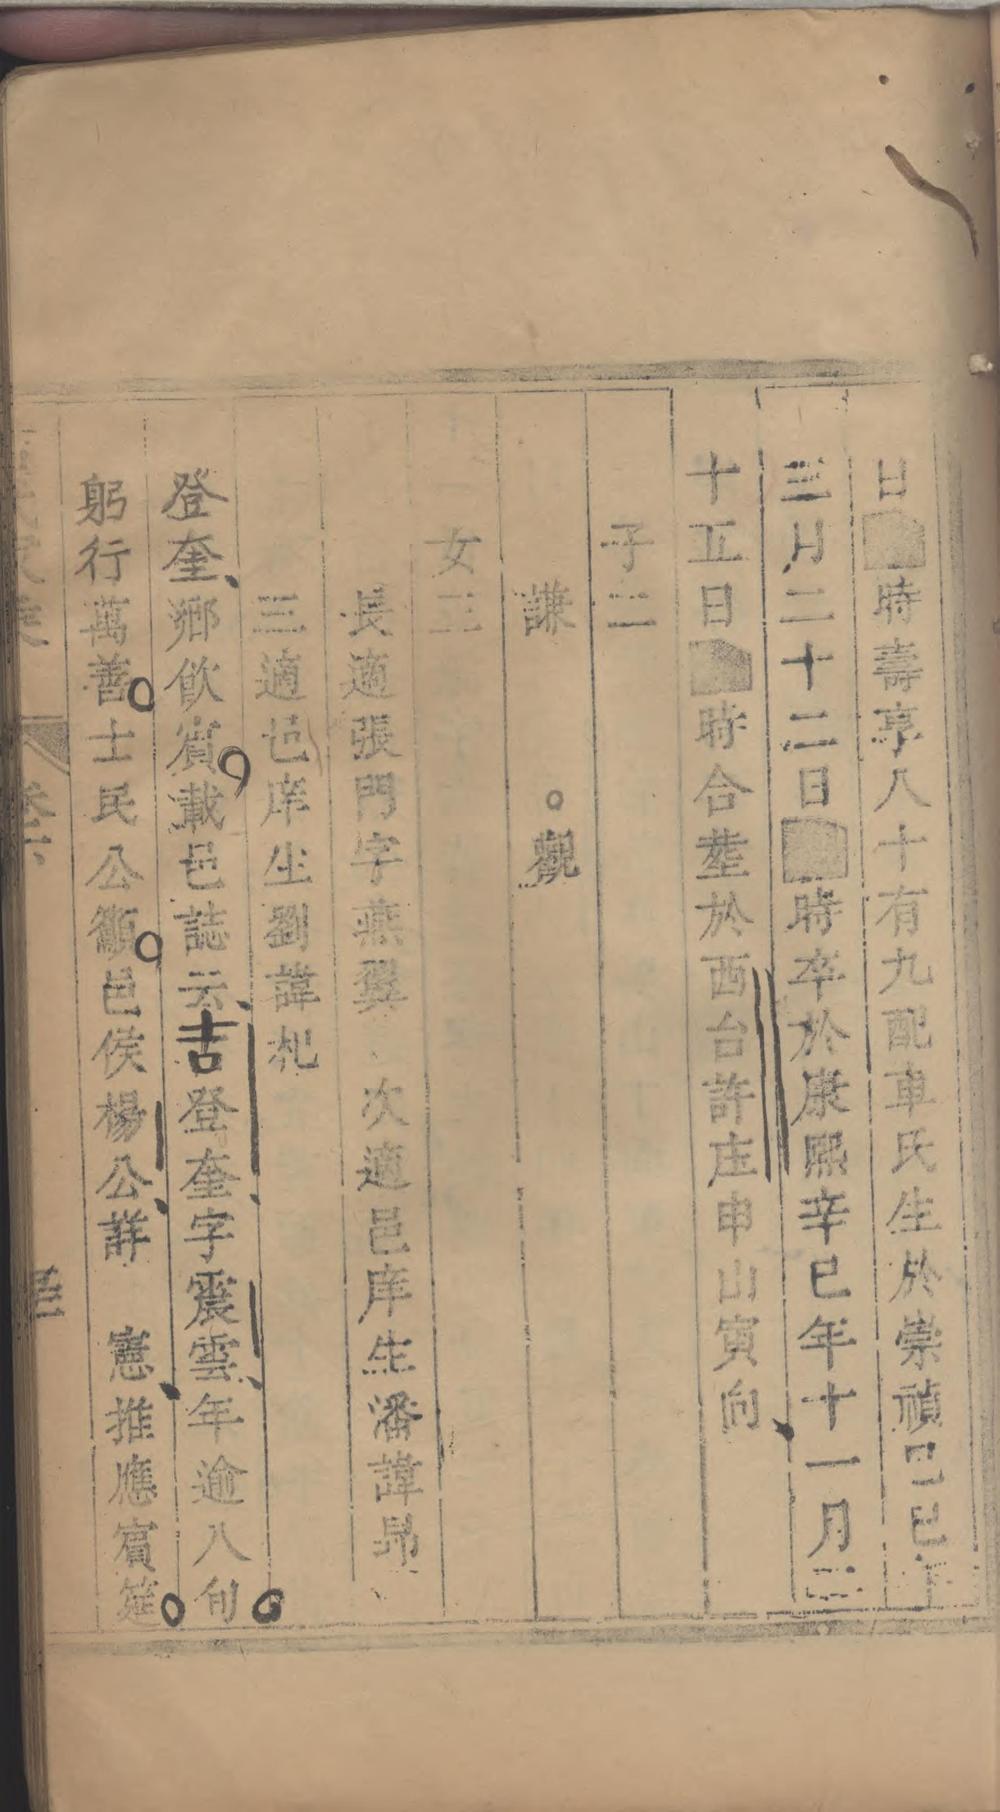 日時壽享八十有九配車氏生於崇禎己巳年
三月二十二日時卒於康熙辛巳年十一月二
十五日時合塟於西台許庄申山寅向
子二
謙。觀
女三
長適張門字燕翼 次適邑庠生潘諱昻
三適邑庠生劉諱札
登奎鄉飲賓載邑誌云吉登奎字震雲年逾八旬
躬行萬善士民公籲邑侯楊公詳 憲推應賓筵
卷六